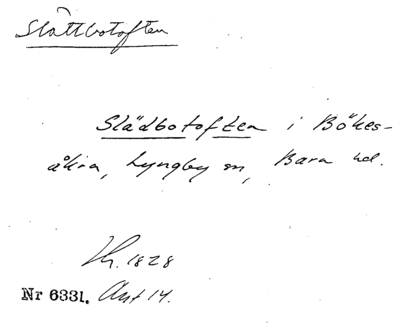 Slättbotoften
Slädbotoften i Bökes-
åkra, Lyngby sn, Bara hd.
Th. 1828
Nr 6331. Ant 14.